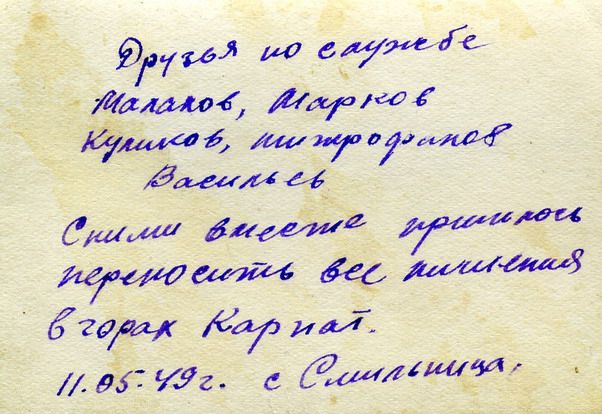 Друзья по службе
Малахов, Марков
Куликов, Митрофанов
Васильев
Сними вместе пришлось
переносить все лишения
в горах Карпат.
11.05-49г. с Смильница.